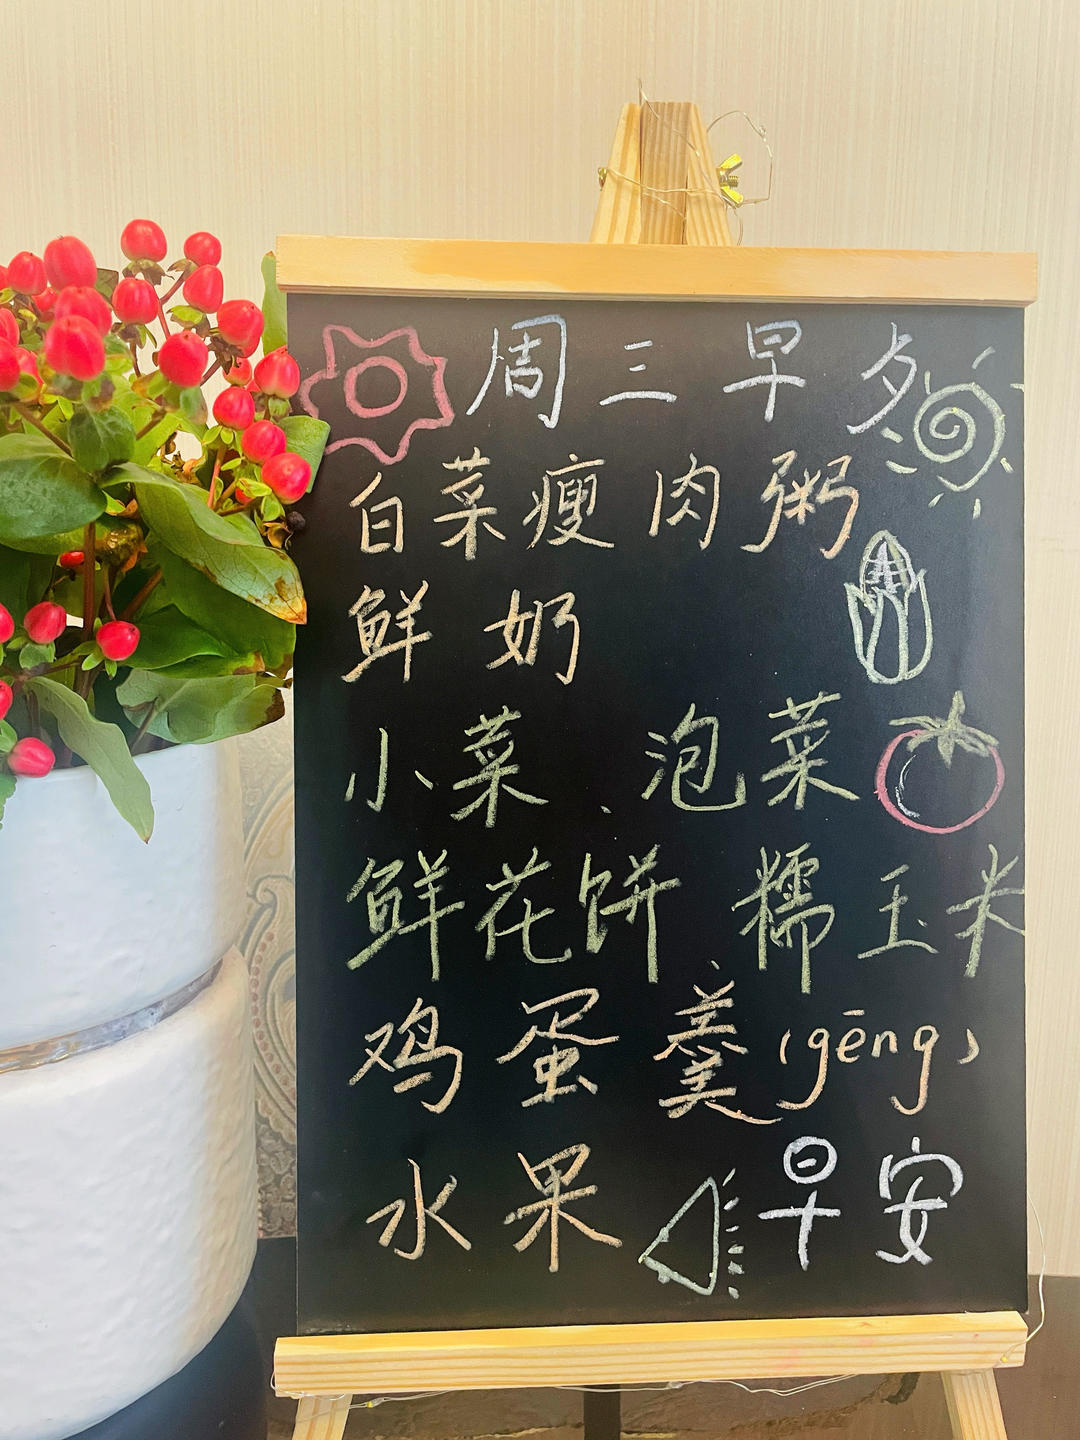 周三早夕
白菜瘦肉粥
鲜奶
小菜、泡菜
鲜花饼 糯玉米
鸡蛋羹(gēng)
水果 早安